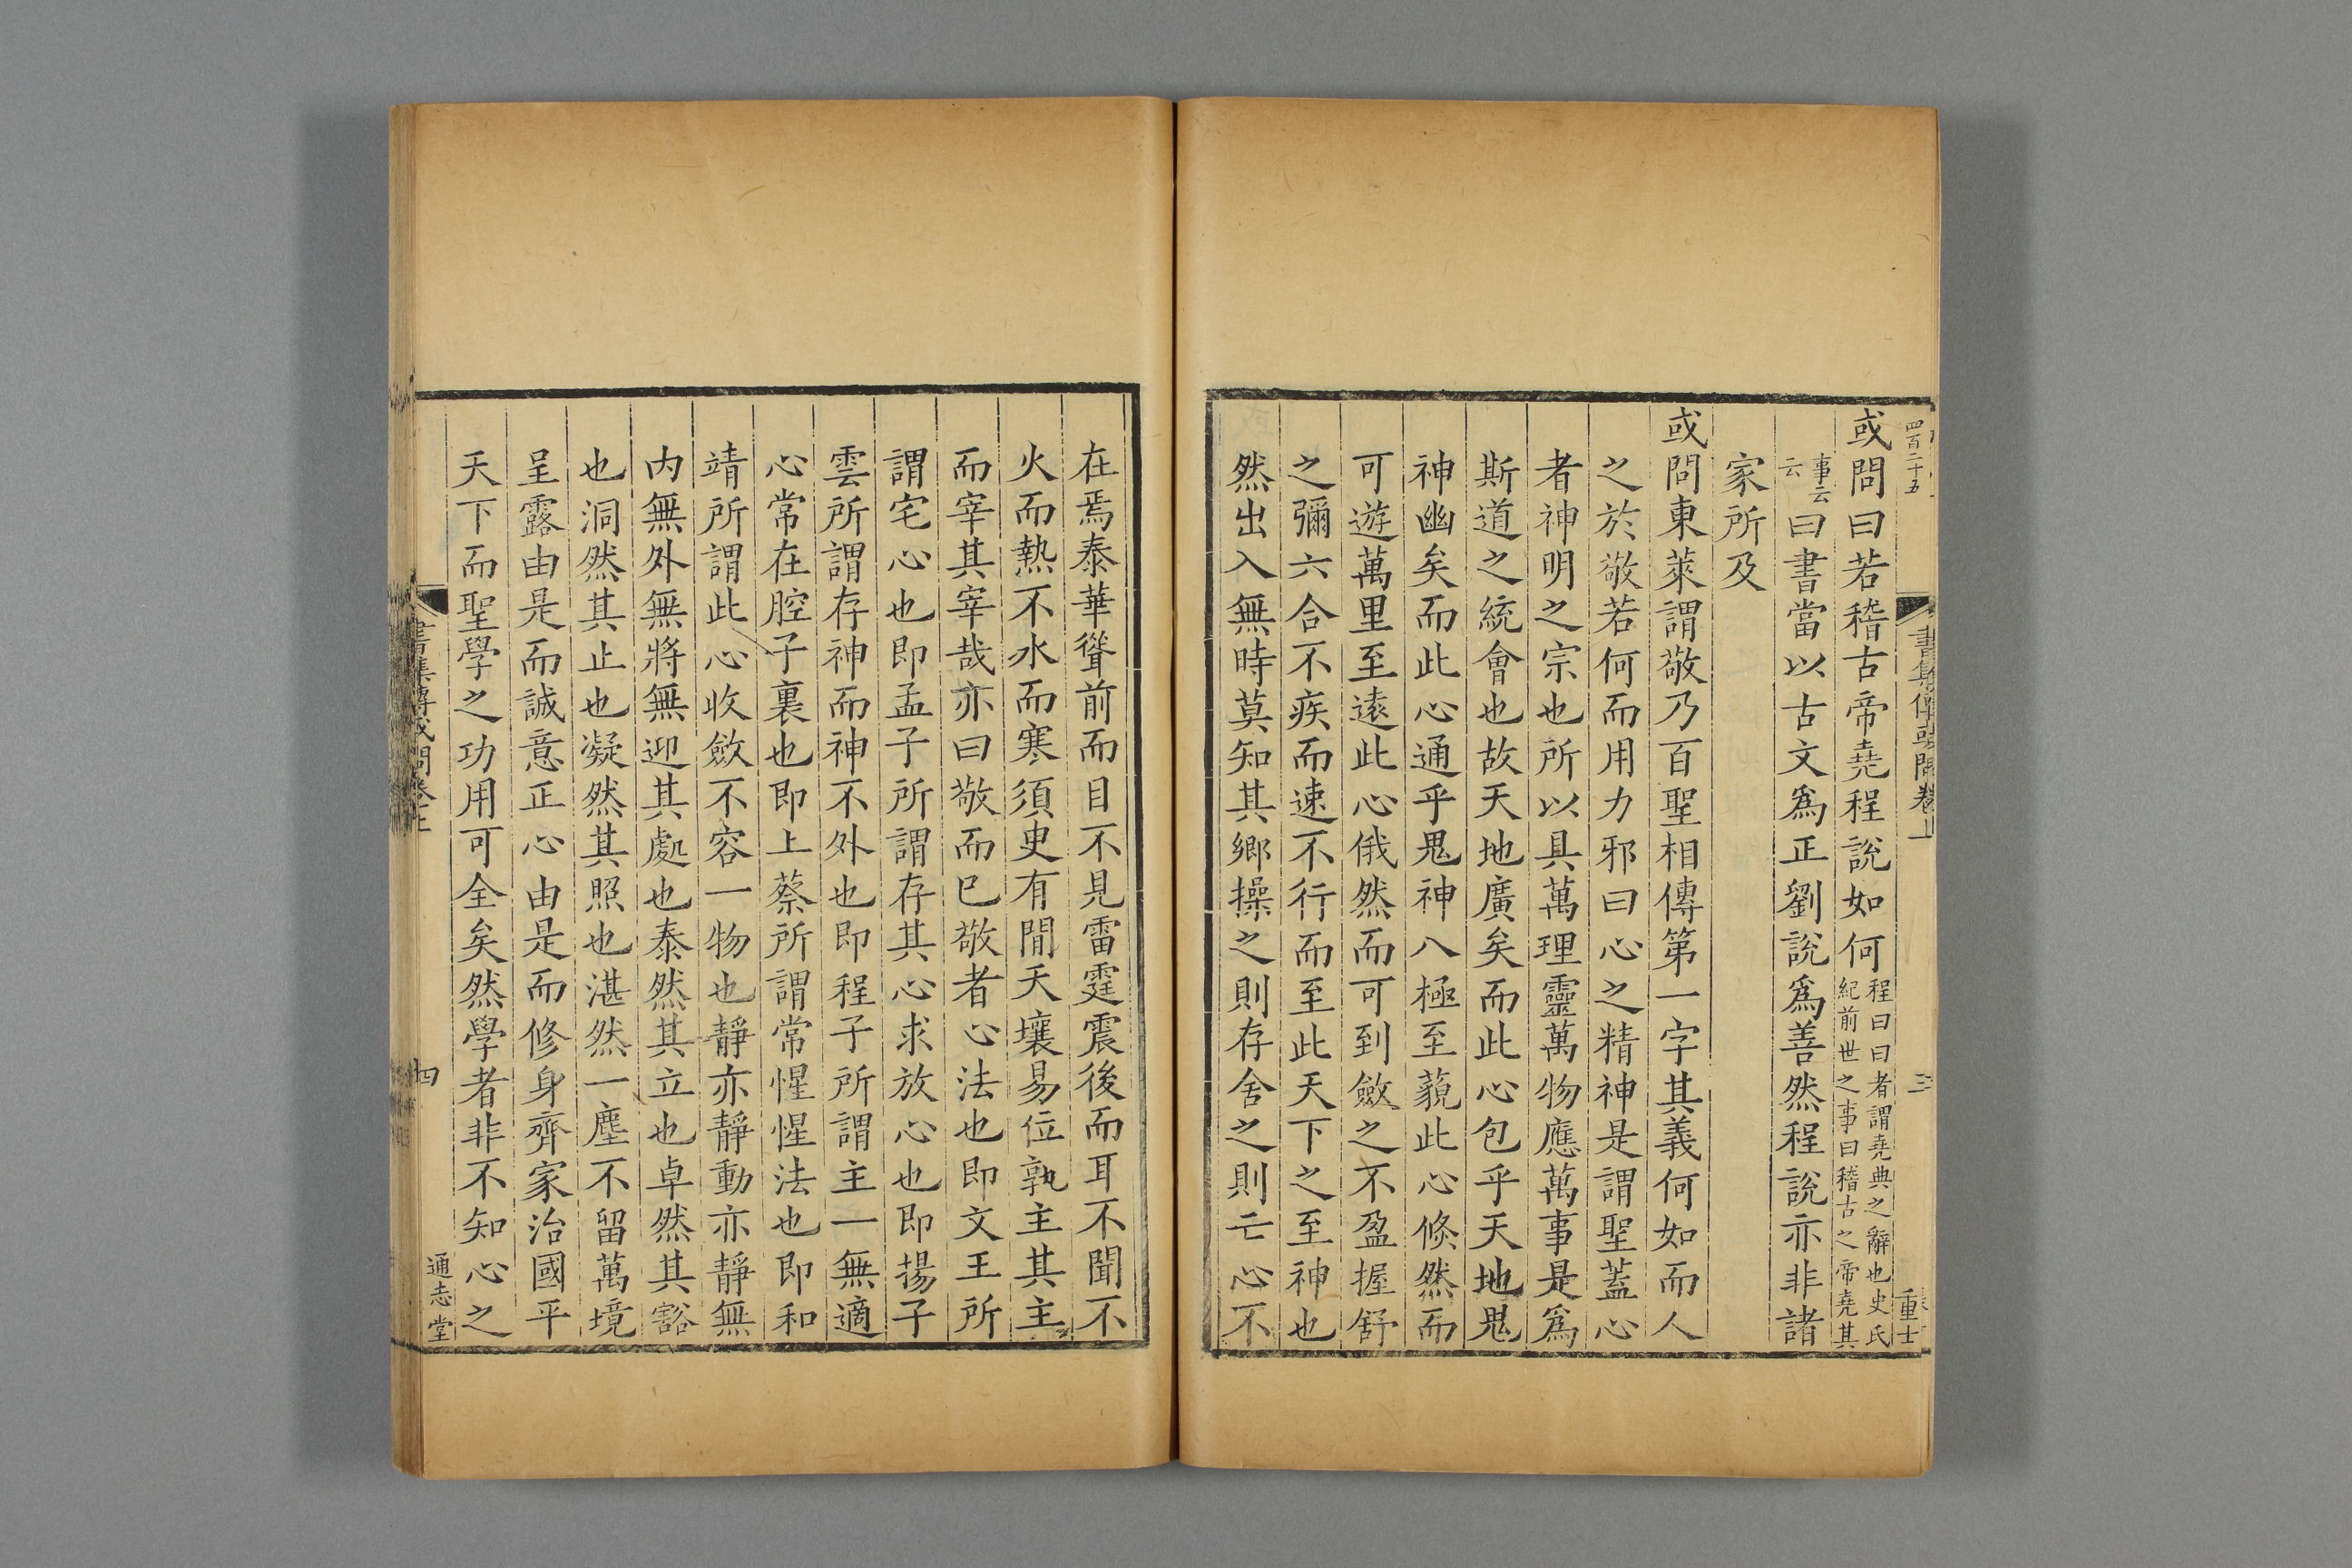 四百二十五
書集傳或問卷上
三
或問曰若稽古帝堯程說如何程曰曰者謂堯典之辭也史氏紀前世之事曰稽古之帝堯其
事云云曰書當以古文爲正劉說爲善然程說亦非諸
家所及
或問東萊謂敬乃百聖相傳第一字其義何如而人
之於敬若何而用力邪曰心之精神是謂聖蓋心
者神明之宗也所以具萬理靈萬物應萬事是爲
斯道之統會也故天地廣矣而此心包乎天地鬼
神幽矣而此心通乎鬼神八極至藐此心倐然而
可遊萬里至遠此心俄然而可到斂之不盈握舒
之彌六合不疾而速不行而至此天下之至神也
然出入無時莫知其鄉操之則存舍之則亡心不
在焉泰華聳前而目不見雷霆震後而耳不聞不
火而熱不氷而寒須臾有閒天壤易位孰主其主
而宰其宰哉亦曰敬而已敬者心法也即文王所
謂宅心也即孟子所謂存其心求放心也即揚子
雲所謂存神而神不外也即程子所謂主一無適
心常在腔子裏也即上蔡所謂常惺惺法也即和
靖所謂此心收斂不容一物也靜亦靜動亦靜無
內無外無將無迎其處也泰然其立也卓然其豁
也洞然其止也凝然其照也湛然一塵不留萬境
呈露由是而誠意正心由是而修身齊家治國平
天下而聖學之功用可全矣然學者非不知心之
書集傳或問卷上
四
通志堂